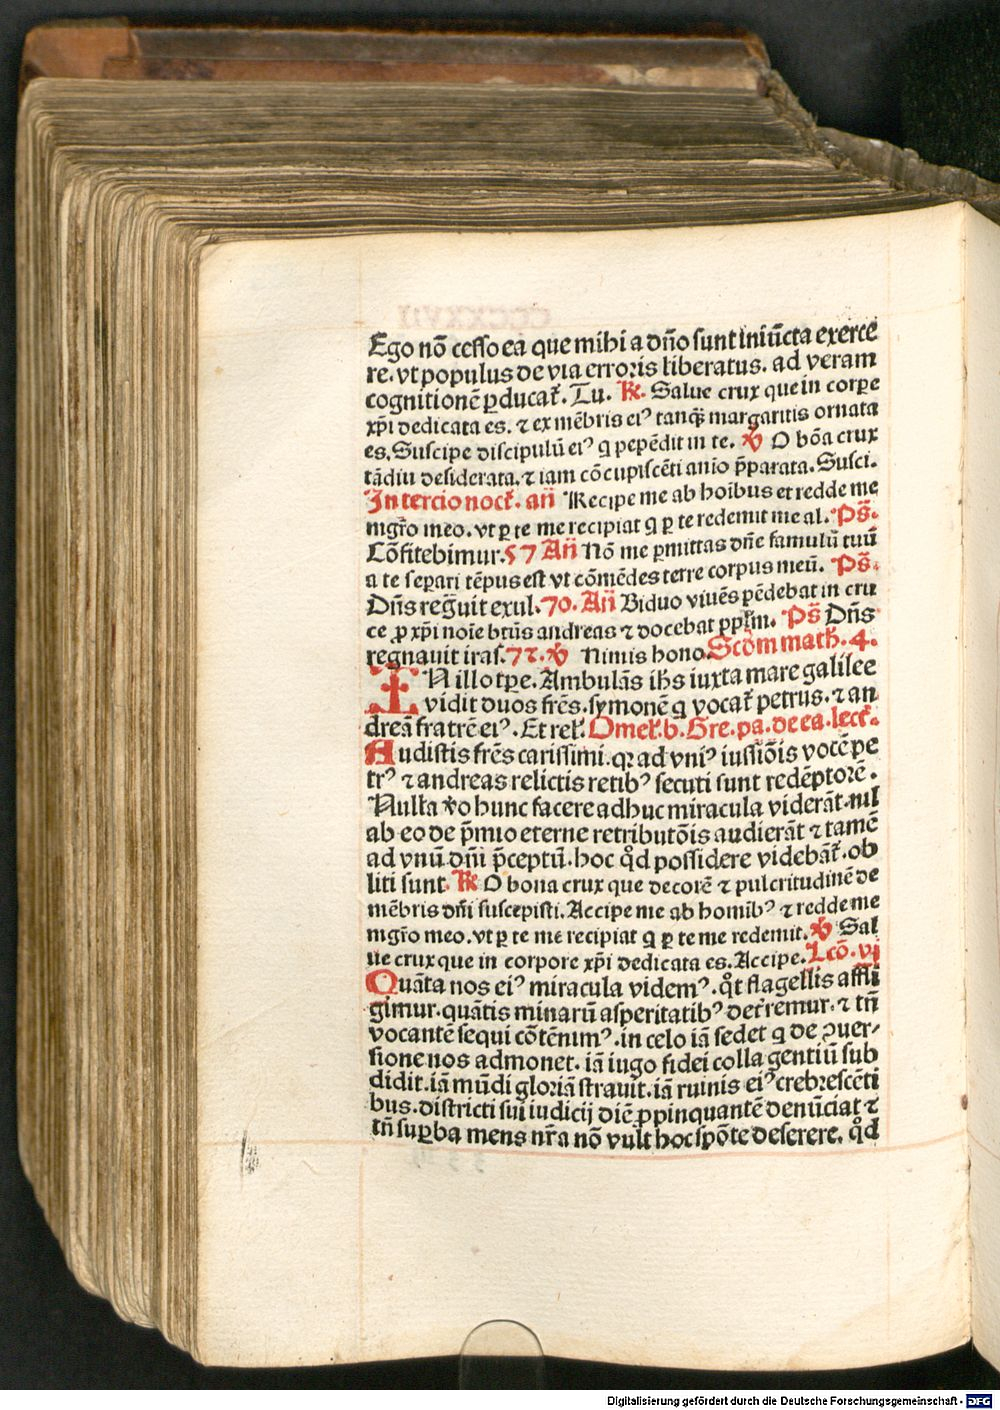 Ego nō cesso ea que mihi a dño sunt iniūcta exerce
re. vt populus de via erroris liberatus. ad veram
cognitionē ꝑducat᷑. Tu. ℞. Salue crux que in corꝑe
xp̄i dedicata es. ⁊ ex mēbris eiꝰ tanq̄ȝ margaritis ornata
es. Suscipe discipulū eiꝰ q pepēdit in te. ℣ O bōa crux
tādiu desiderata. ⁊ iam cōcupiscēti anio p̄parata. Susci.
In tercio noct᷑. añ Recipe me ab hoībus et redde me
mgr̄o meo. vt ꝑ te me recipiat q ꝑ te redemit me al. Ps̄.
Cōfitebimur. 57 Añ Nō me ꝑmittas dñe famulū tuū
a te seꝑari tēpus est vt cōmēdes terre corpus meū. Ps̄.
Dñs regᷓuit exul. 70. Añ Biduo viuēs pēdebat in cru
ce ꝓ xp̄i noīe btūs andreas ⁊ docebat pplm̄. Ps̄ Dñs
regnauit iras. 72. ℣ Nimis hono. Scd̄m math᷑. 4.
IN illo tꝑe. Ambulās ihs iuxta mare galilee
vidit duos frēs. symonē q vocat᷑ petrus. ⁊ an
dreā fratrē eiꝰ. Et rel᷑. Omel᷑. b. Gre. pa. de ea. lect᷑.
Audistis frēs carissimi. qꝛ ad vniꝰ iussiōis vocē pe
trꝰ ⁊ andreas relictis retibꝰ secuti sunt redēptorē.
Nulla ꝟo hunc facere adhuc miracula viderāt. nil
ab eo de p̄mio eterne retributōis audierāt ⁊ tamē
ad vnū dñi p̄ceptū. hoc qᷘd possidere videbāt᷑. ob
liti sunt. ℞ O bona crux que decorē ⁊ pulcritudinē de
mēbris dñi suscepisti. Accipe me ab homibꝰ ⁊ redde me
mgr̄o meo. vt ꝑ te me recipiat q ꝑ te me redemit. ℣ Sal
ue crux que in corpore xp̄i dedicata es. Accipe. Lcō. vj
Quāta nos eiꝰ miracula videmꝰ. qͦt flagellis affli
gimur. quātis minarū asperitatibꝰ det᷑remur. ⁊ tñ
vocantē sequi cōtēnimꝰ. in celo iā sedet q de ꝯuer⸗
sione nos admonet. iā iugo fidei colla gentiū sub
didit. iā mūdi gloriā strauit. iā ruinis eiꝰ crebrescēti
bus. districti sui iudicij diē ꝓpinquantē denūciat ⁊
tñ suꝑba mens nr̄a nō vult hoc spōte deserere. qͦd
Digitalisierung gefördert durch die Deutsche Forschungsgemeinschaft - DFG